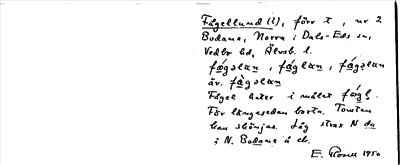 Fågellund (i), förr t, nr 2
Bodane, Norra; Dals-Eds sn,
Vedbo hd, Älvsb. l.
fǿgəlan, fǻglan, fǻgəlan
äv. fàgəlan
Fågel heter i målet
För längesedan borta. Tomten
kan skönjas. Låg strax N du
i N. Bodane å ek.
E. 1950